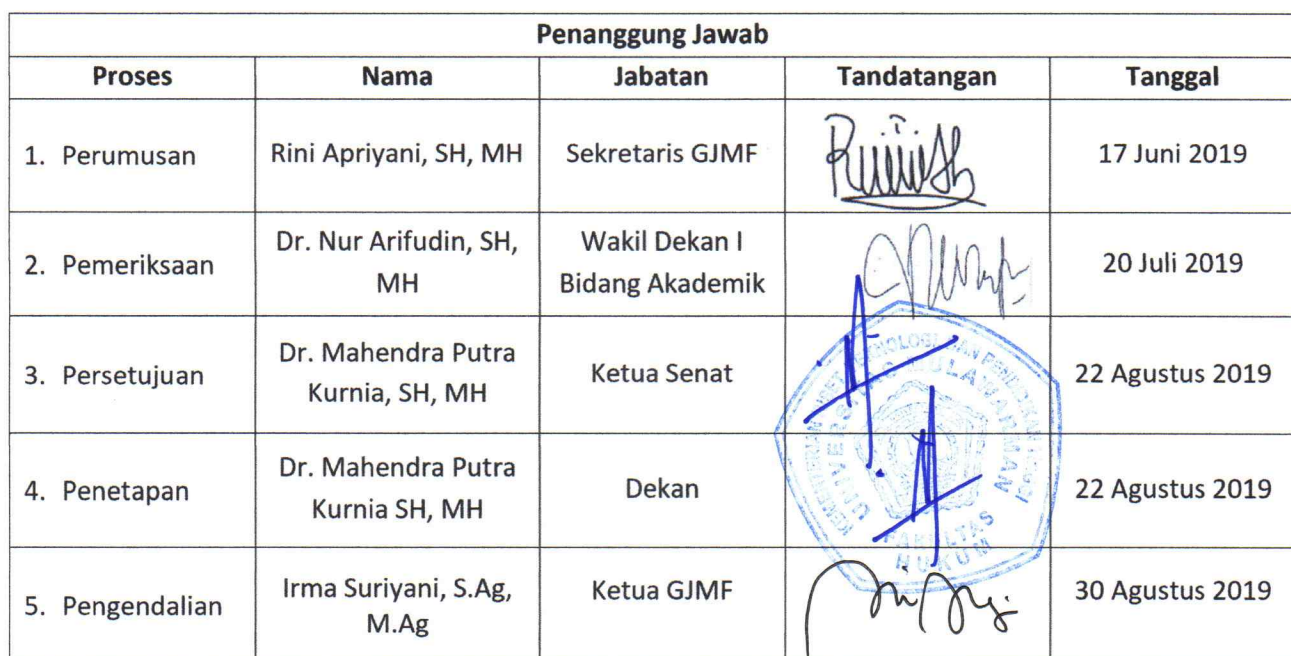 Penanggung Jawab
Proses Nama Jabatan Tandatangan Tanggal
1. Perumusan Rini Apriyani, SH, MH Sekretaris GJMF 17 Juni 2019
2. Pemeriksaan Dr. Nur Arifudin, SH,
MH Wakil Dekan I
Bidang Akademik 20 Juli 2019
3. Persetujuan Dr. Mahendra Putra
Kurnia, SH, MH Ketua Senat 22 Agustus 2019
4. Penetapan Dr. Mahendra Putra
Kurnia SH, MH Dekan 22 Agustus 2019
5. Pengendalian Irma Suriyani, S.Ag,
M.Ag Ketua GJMF 30 Agustus 2019
UNIVERSITAS MULAWARMAN
FAKULTAS
HUKUM